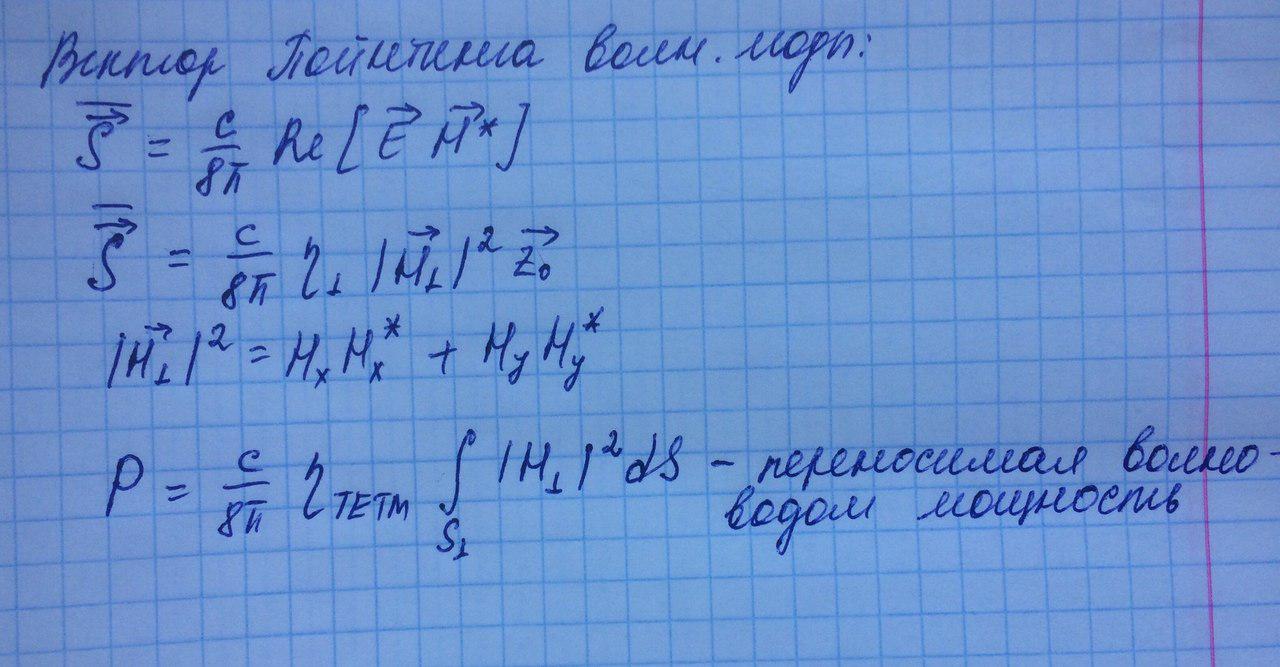 Вектор Пойнтинга волн. моды:
$\overline{\vec{S}} = \frac{c}{8\pi} Re [\vec{E} \vec{H}^*]$
$\overline{\vec{S}} = \frac{c}{8\pi} \eta_\perp |\vec{H}_\perp|^2 \vec{z}_0$
$|\vec{H}_\perp|^2 = H_x H_x^* + H_y H_y^*$
$P = \frac{c}{8\pi} \eta_{TETM} \int_{S_\perp} |H_\perp|^2 dS$ – переносимая волно-
водом мощность